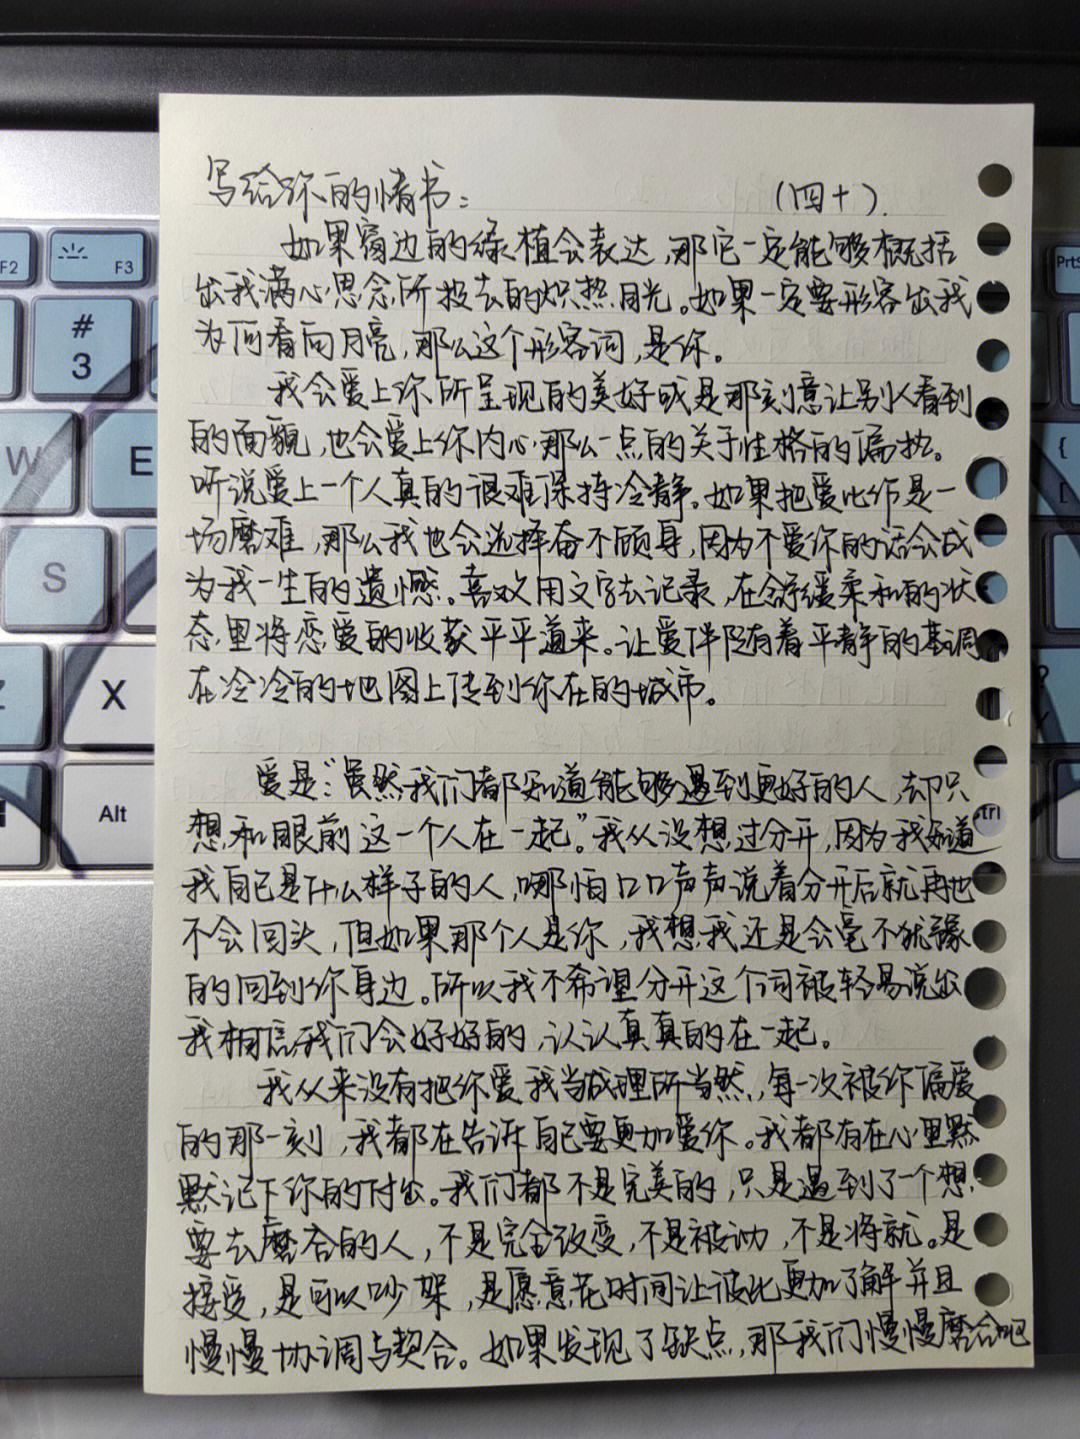 写给你的情书：	（四十）.
如果窗边的绿植会表达，那它一定能够概括
出我满心思念所投去的炽热目光。如果一定要形容出我
为何看向月亮，那么这个形容词，是你。
我会爱上你所呈现的美好或是那刻意让别人看到
的面貌，也会爱上你内心那么一点的关于性格的偏执。
听说爱上一个人真的很难保持冷静。如果把爱比作是一
场磨难，那么我也会选择奋不顾身，因为不爱你的话会成
为我一生的遗憾。喜欢用文字去记录，在舒缓柔和的状
态里将恋爱的收获平平道来。让爱伴随有着平静的基调
在冷冷的地图上传到你在的城市。
爱是：“虽然我们都知道能够遇到更好的人，却只
想和眼前这一个人在一起。”我从没想过分开，因为我知道
我自己是什么样子的人，哪怕口口声声说着分开后就再也
不会回头，但如果那个人是你，我想我还是会毫不犹豫
的回到你身边。所以我不希望分开这个词被轻易说出
我相信我们会好好的，认认真真的在一起。
我从来没有把你爱我当成理所当然，每一次被你偏爱
的那一刻，我都在告诉自己要更加爱你。我都有在心里默
默记下你的付出。我们都不是完美的，只是遇到了一个想
要去磨合的人，不是完全改变，不是被动，不是将就。是
接受，是可以吵架，是愿意花时间让彼此更加了解并且
慢慢协调与契合。如果发现了缺点，那我们慢慢磨合吧
F2
F3
#
3
W
E
S
Z
X
Alt
PrtS
{
[
?
trl